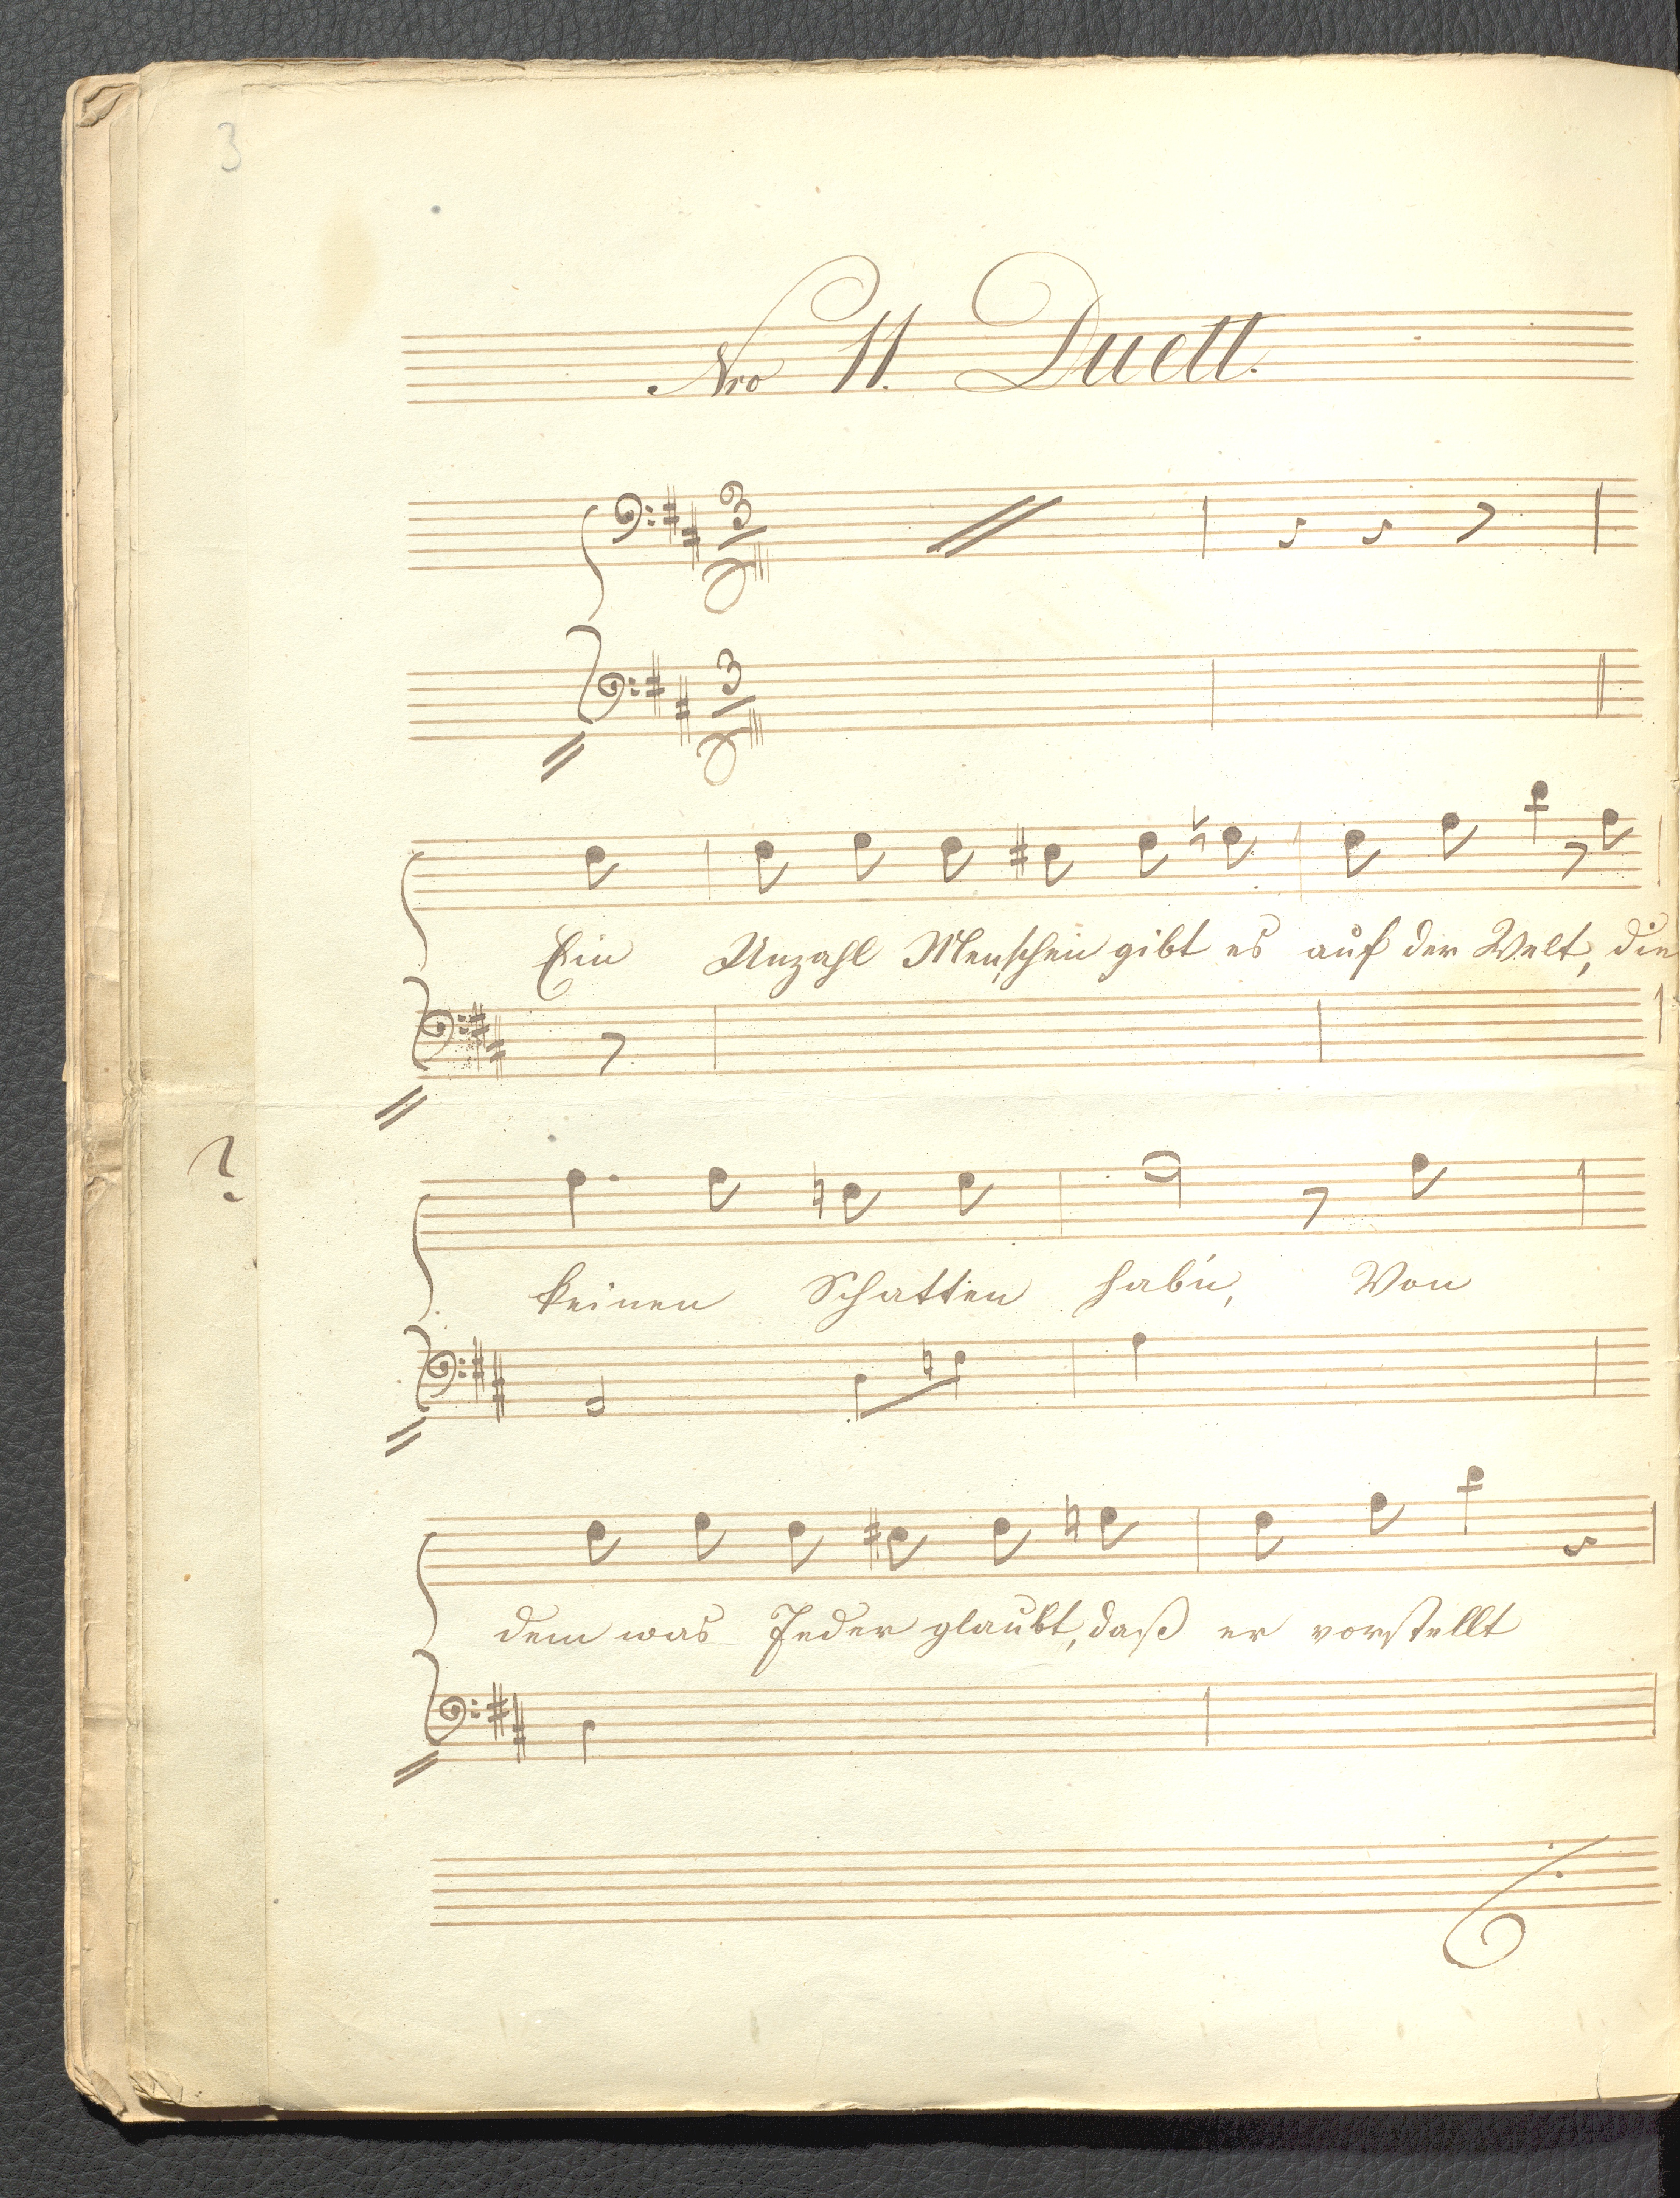 3
Nro 11. Duett.
3
3
Ein Unzahl Menschen gibt es auf der Welt, die
?
keinen Schatten hab'n, Von
dem was Jeder glaubt, daß er vorstellt